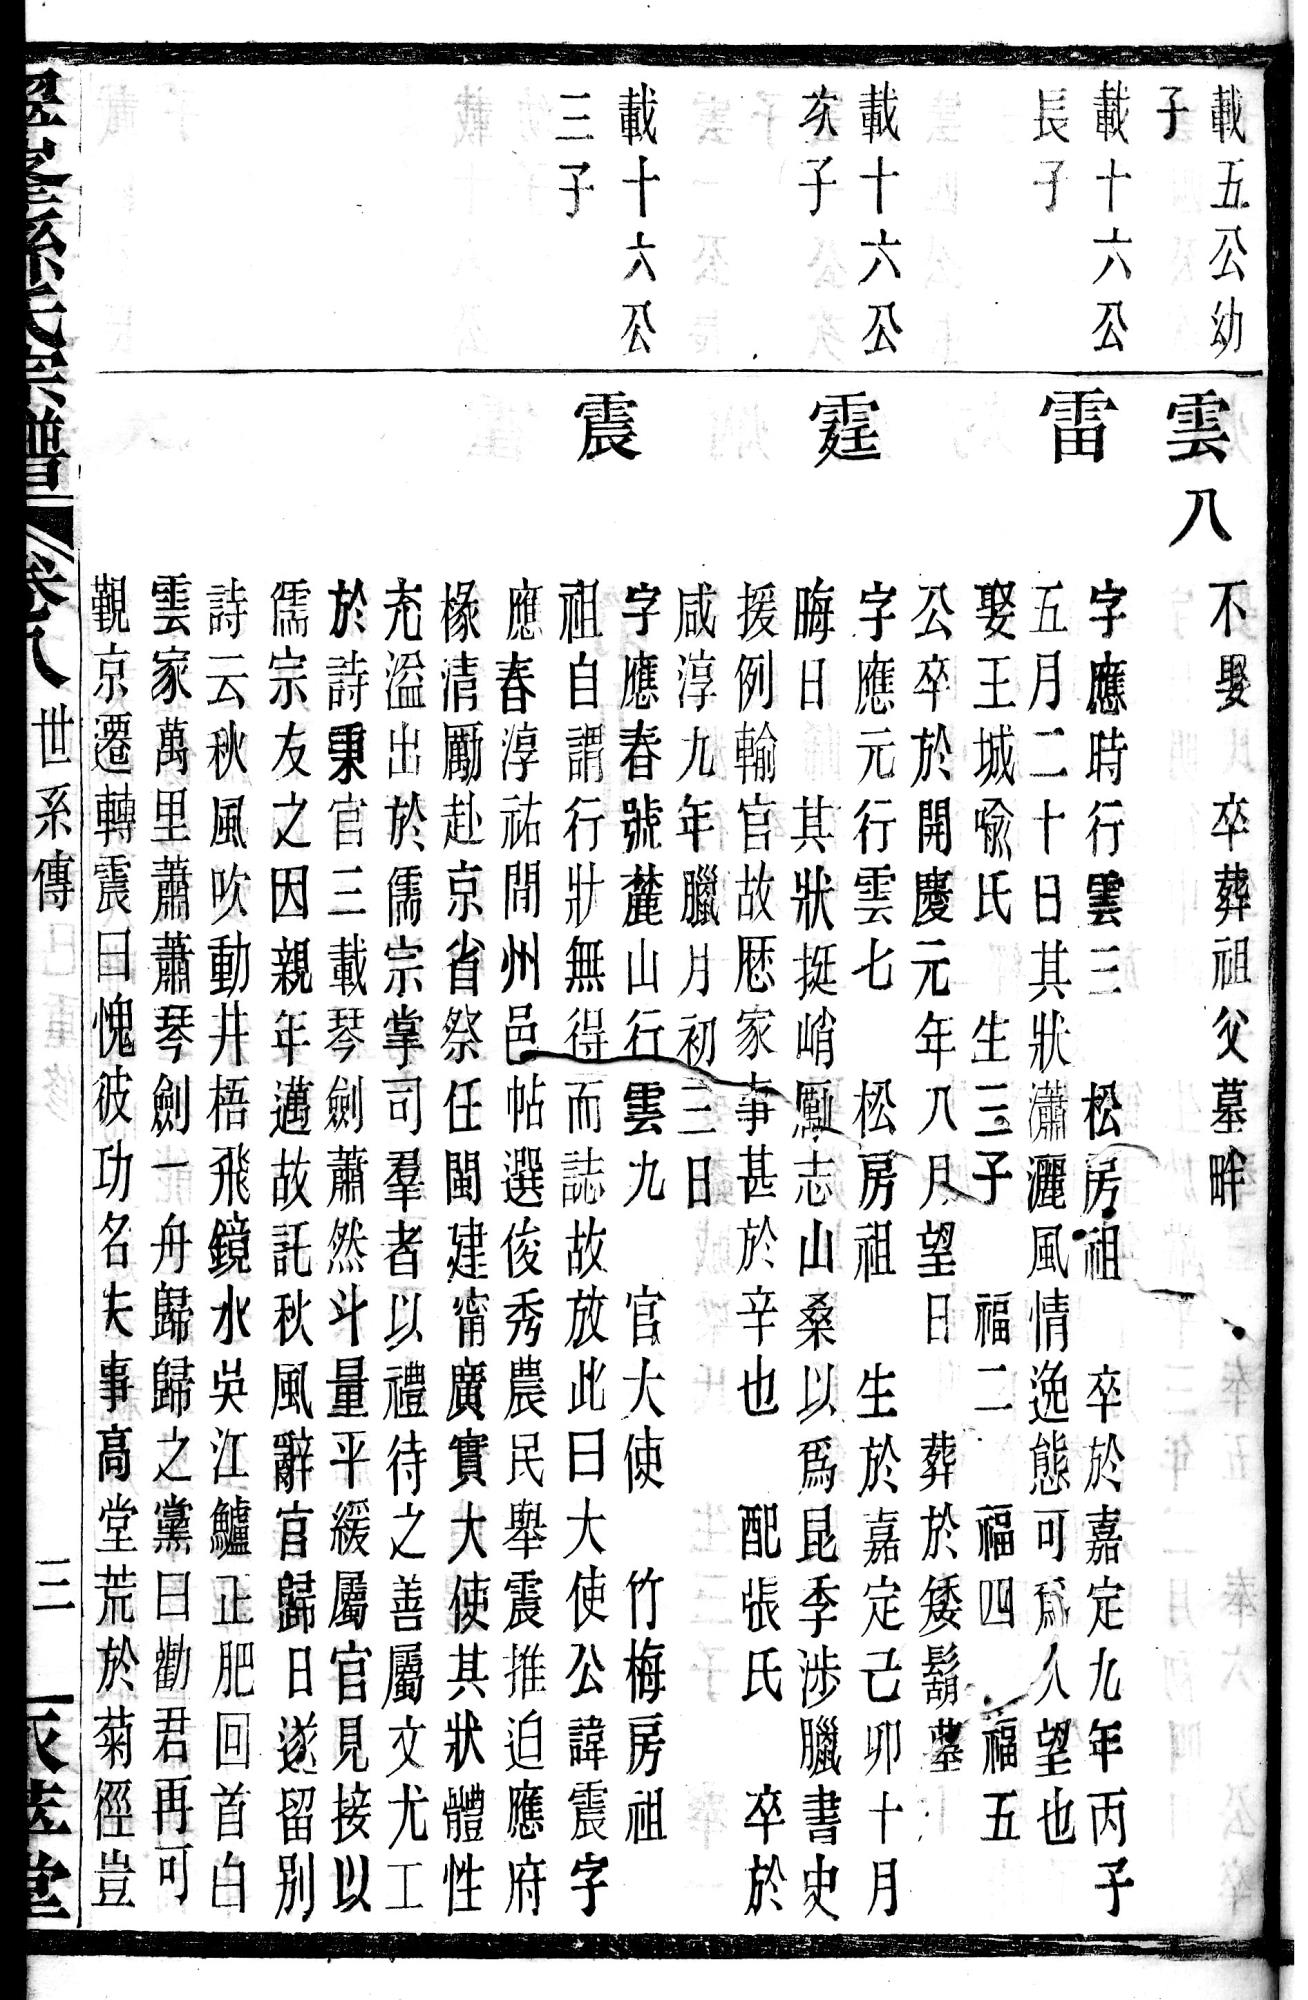 載五公幼
子
雲八
不娶　卒葬祖父墓畔
載十六公
長子
雷
字應時行雲三　松房祖　卒於嘉定九年丙子
五月二十日其狀瀟灑風情逸態可爲人望也
娶王城喩氏　生三子　福二　福四　福五
公卒於開慶元年八月望日　葬於矮鬍墓
載十六公
次子
霆
字應元行雲七　松房祖　生於嘉定己卯十月
晦日　其狀挺峭勵志山桑以爲昆季涉臘書史
援例輸官故厯家事甚於辛也　配張氏　卒於
咸淳九年臘月初三日
載十六公
三子
震
字應春號麓山行雲九　官大使　竹梅房祖
祖自謂行狀無得而誌故放此曰大使公諱震字
應春淳祐間州邑帖選俊秀農民舉震推迫應府
椽清勵赴京省祭任閩建甯廣實大使其狀體性
充溢出於儒宗掌司羣者以禮待之善屬文尤工
於詩秉官三載琴劍蕭然斗量平緩屬官見接以
儒宗友之因親年邁故託秋風辭官歸日遂留別
詩云秋風吹動井梧飛鏡水吳江鱸正肥回首白
雲家萬里蕭蕭琴劍一舟歸歸之黨曰勸君再可
覲京遷轉震曰愧彼功名夫事高堂荒於菊徑豈
孫氏宗譜
卷八
世系傳
三
堂